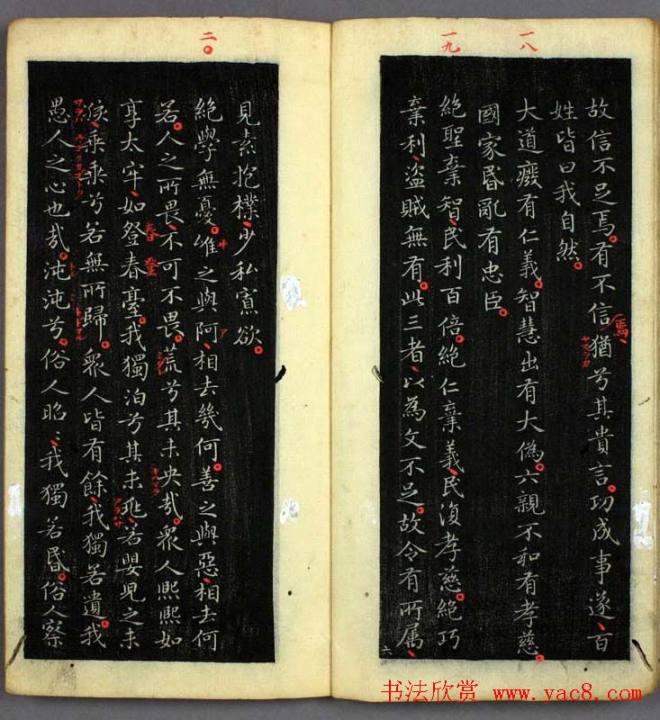 一八
一九
故信不足焉。有不信。猶兮其貴言。功成事遂、百
姓皆曰我自然。
大道廢有仁義。智慧出有大偽。六親不和有孝慈。
國家昬亂有忠臣。
絕聖棄智、民利百倍。絕仁棄義、民復孝慈。絕巧
棄利、盜賊無有。此三者、以為文不足。故令有所属、
六
二〇
見素抱樸、少私寡欲。
絕學無憂。唯之與阿、相去幾何。善之與惡、相去何
若。人之所畏、不可不畏。荒兮其未央哉。衆人熈熈如
享太牢、如登春臺。我獨泊兮其未兆、若嬰児之未
孩、乘乘兮若無所歸。衆人皆有餘、我獨若遺。我
愚人之心也哉。沌沌兮。俗人昭〻、我獨若昬。俗人察
书法欣赏 www.yac8.com